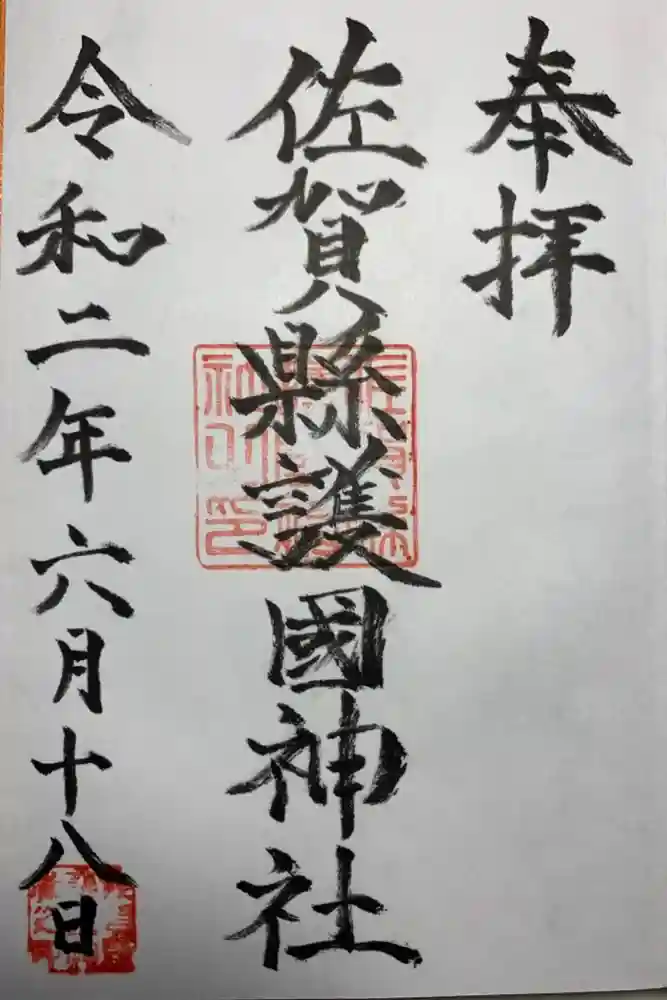 奉拝
佐賀縣護國神社
令和二年六月十八日